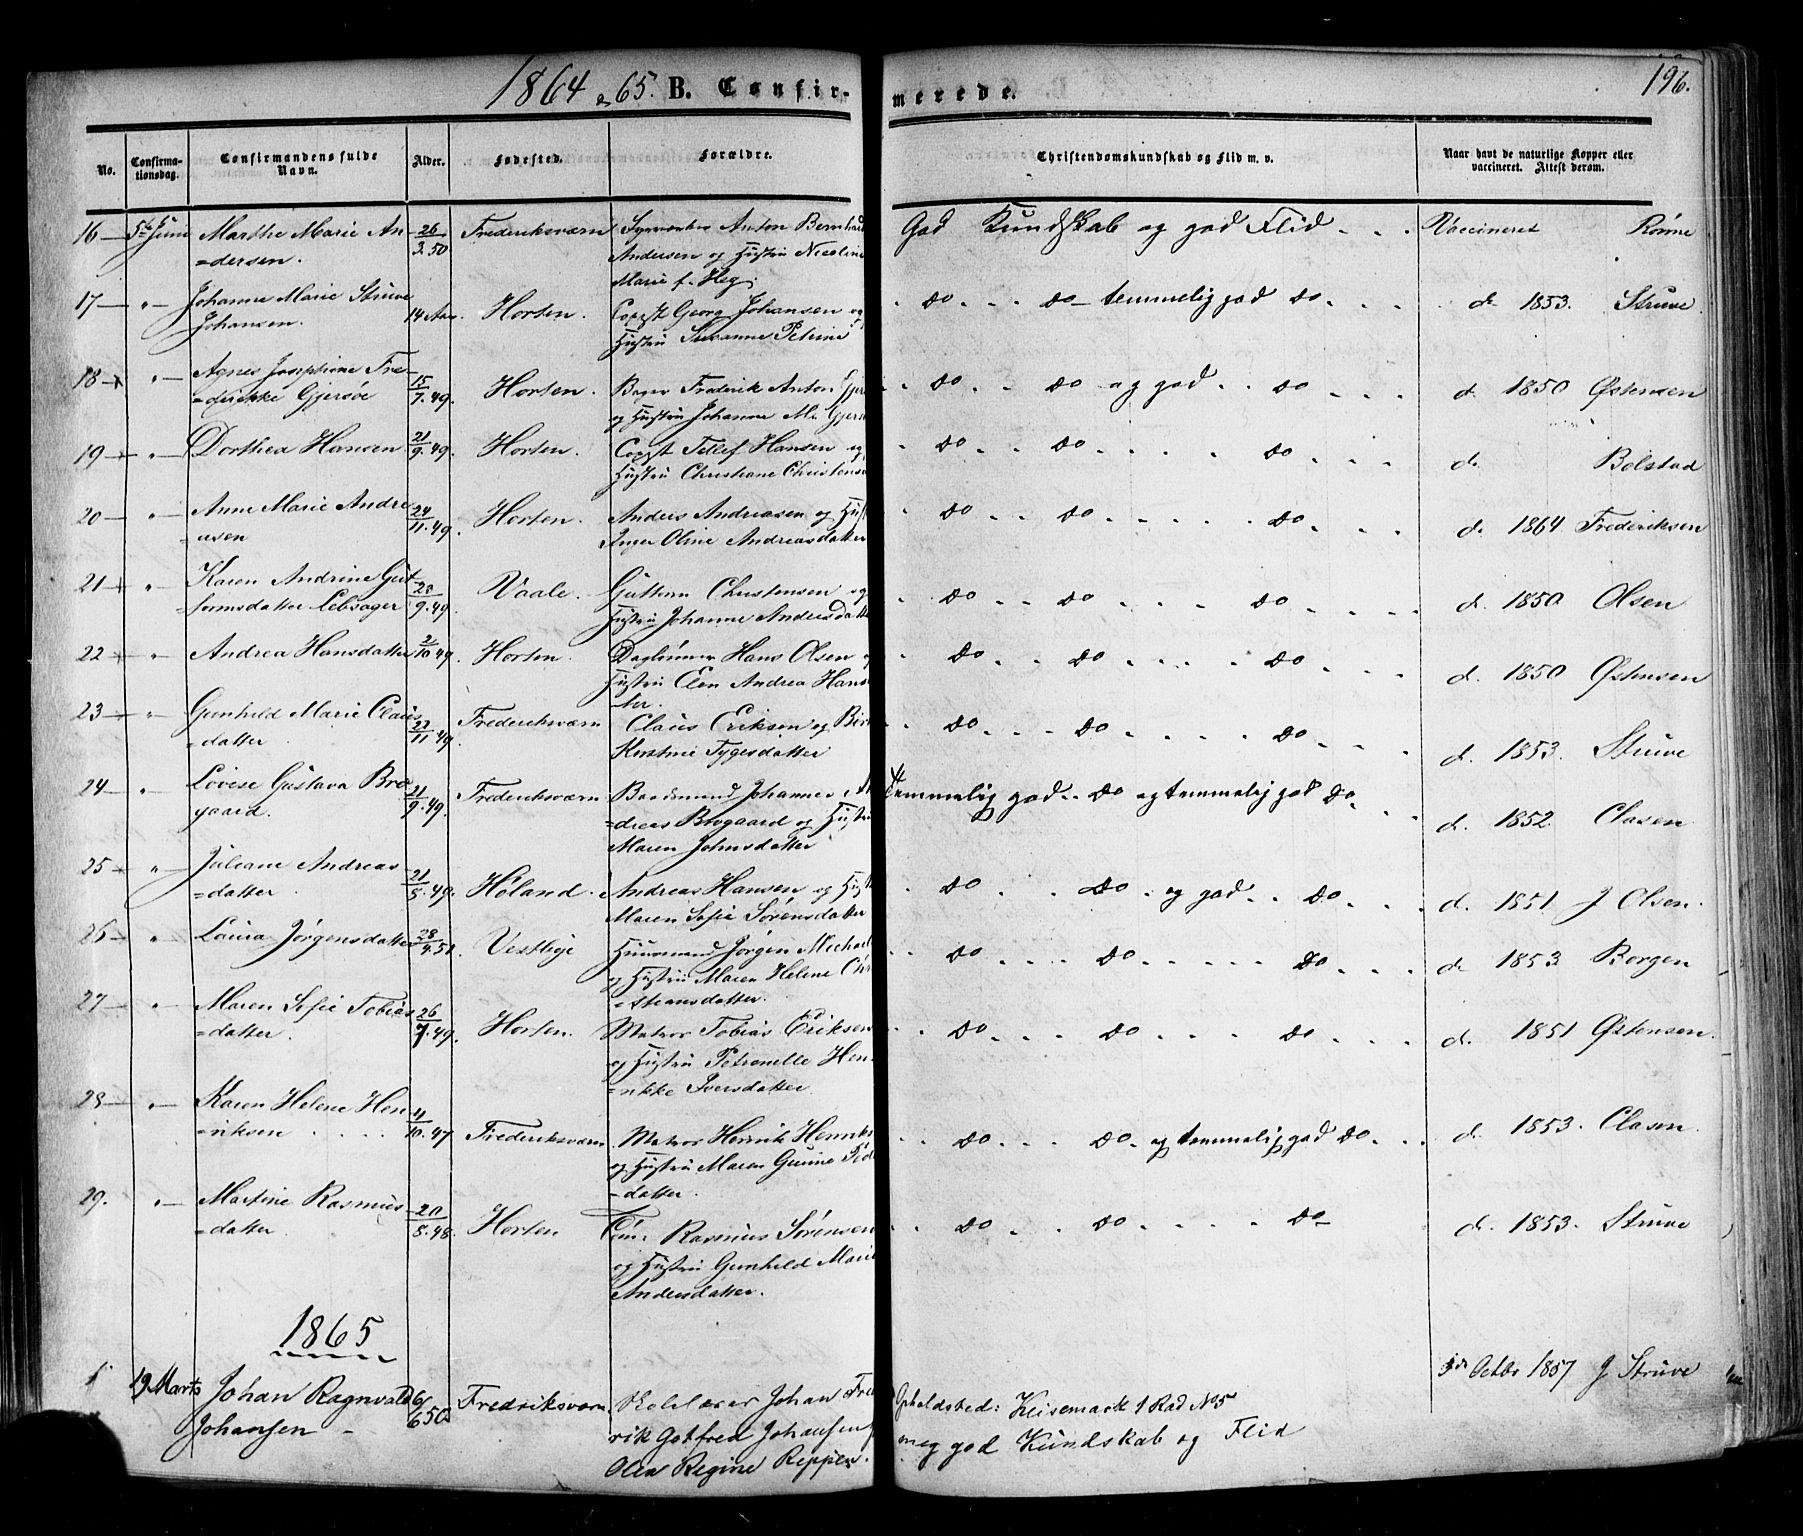 1864 & 65. B. Confirmerede. 196.
No. Confirmationsdag. Confirmandens fulde Navn. Alder. Fødested. Forældre. Christendomskundskab og Flid m. v. Naar havt de naturlige Kopper eller vaccineret. Attest derom.
16 5te Juni Marthe Marie An 26/3.50 Frederiksværn Anton Bernhard God Kundskab og god Flid Vaccineret Rønne
=dersen. Andersen og Hustru Nicoline
Marie f. Heg.
17 " Johanne Marie Struve 14 Aar Horten. Copist Georg Johansen og do do temmelig god do d. 1853. Struve
Johansen. Hustru Susanne Petrine
18 " Agnes Josephine Fre 15/7.49. Horten. Bager Frederik Anton do do og god do d. 1850 Østensen
=derikke Gjersøe og Hustru Johanne M.
19 " Dorthea Hansen 21/9.49. Horten. Copist Tellef Hansen og do do do d. Bolstad
Hustru Christiane
20 " Anne Marie Andre 24/11.49. Horten. Anders Andreasen og do do do d. 1864 Frederiksen
=asen Inger Oline Andreasdatter
21 " Karen Andrine Gut 9.49. Vaale. Guttorm Christensen og do do do d. 1850 Olsen
=formsdatter Lebsager Hustru Johanne Andersdatter
22 " Andrea Hansdatter 2/10 49. Horten. Hans Olsen do do do d. 1850 Østensen
Hustru Elen Andrea Hans
=ter.
23 " Gunhild Marie Claus 22/11 49. Frederiksværn Claus Eriksen og do do do d. 1853. Struve
=datter Kirstine Tygesdatter
24 " Lovise Gustava Bro 21/9.49. Frederiksværn Baadsmand Johannes temmelig god do og temmelig god do d. 1852. Clasen
gaard. =dreas Brogaard og Hustru
Maren Johnsdatter
25 " Juliane Andreas 21/8.49. Høland. Andreas Hansen og do do og god do d. 1851 J Olsen.
=datter Maren Sofie Sørensdatter
26 " Laura Jørgensdatter Vestbye Huusmand Jørgen Michael do do do d. 1853 Borgen
og Hustru Maren Helene
=stiansdatter.
27 " Maren Sofie Tobias 26/7.49. Horten. Matros Tobias Eriksen do do do d. 1851 Østensen.
=datter. og Hustru Petronelle Hen
=rikke Iversdatter
28 " Karen Helene Hen 4/10.47 Frederiksværn Matros Henrik do do og temmelig god do d. 1853. Clasen.
=riksen og Hustru Maren Gunine
=datter.
29. " Martine Rasmus 20/8.48. Horten Rasmus Sørensen do do do d. 1853. Struve
=datter og Hustru Gunhild Marie
Andersdatter.
1865
1 19 Marts Johan Ragnvald 6/6 50 Fredriksværn. Skolelærer Johan Fred Opholdsted: Keisemark 1 Rad No 5 Octbr 1857 J Struve
Johansen rik Gotfred Johansen meg god Kundskab og Flid
Olea Regine